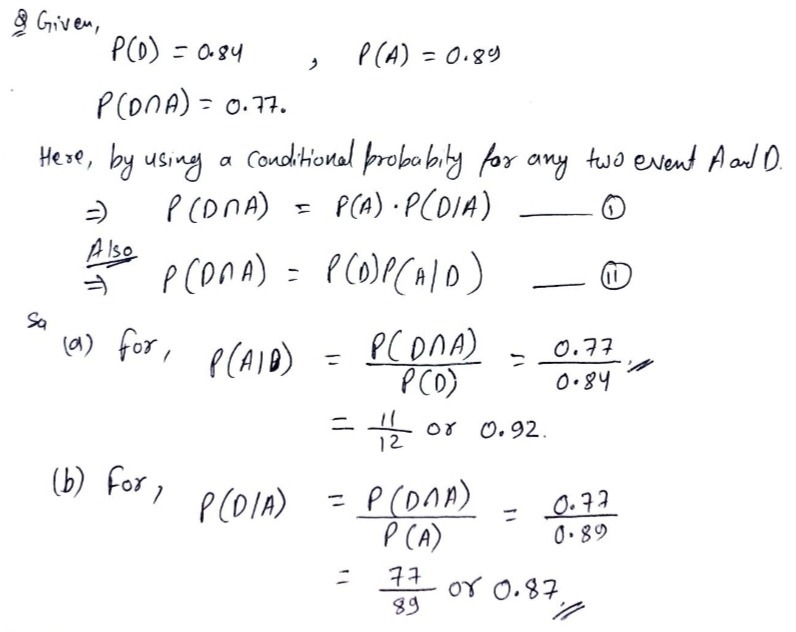 Q Given,
P(D) = 0.84 , P(A) = 0.89
P(D∩A) = 0.77.
Here, by using a Conditional probabity for any two event A and D.
⇒ P(D∩A) = P(A)·P(D/A) — (i)
Also
⇒ P(D∩A) = P(D)P(A/D) — (ii)
So
(a) for, P(A|D) = P(D∩A)/P(D) = 0.77/0.84
= 11/12 or 0.92.
(b) For, P(D/A) = P(D∩A)/P(A) = 0.77/0.89
= 77/89 or 0.87